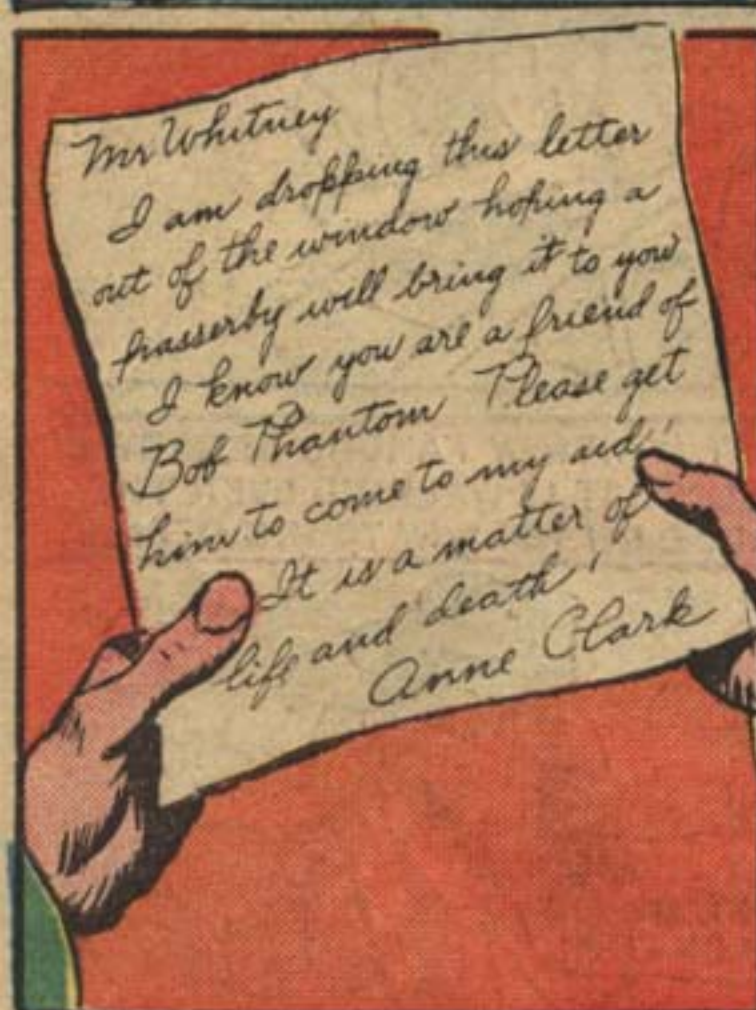 Mr Whitney
I am dropping this letter
out of the window hoping a
passerby will bring it to you
I know you are a friend of
Bob Phantom Please get
him to come to my aid!
It is a matter of
life and death!
Anne Clark